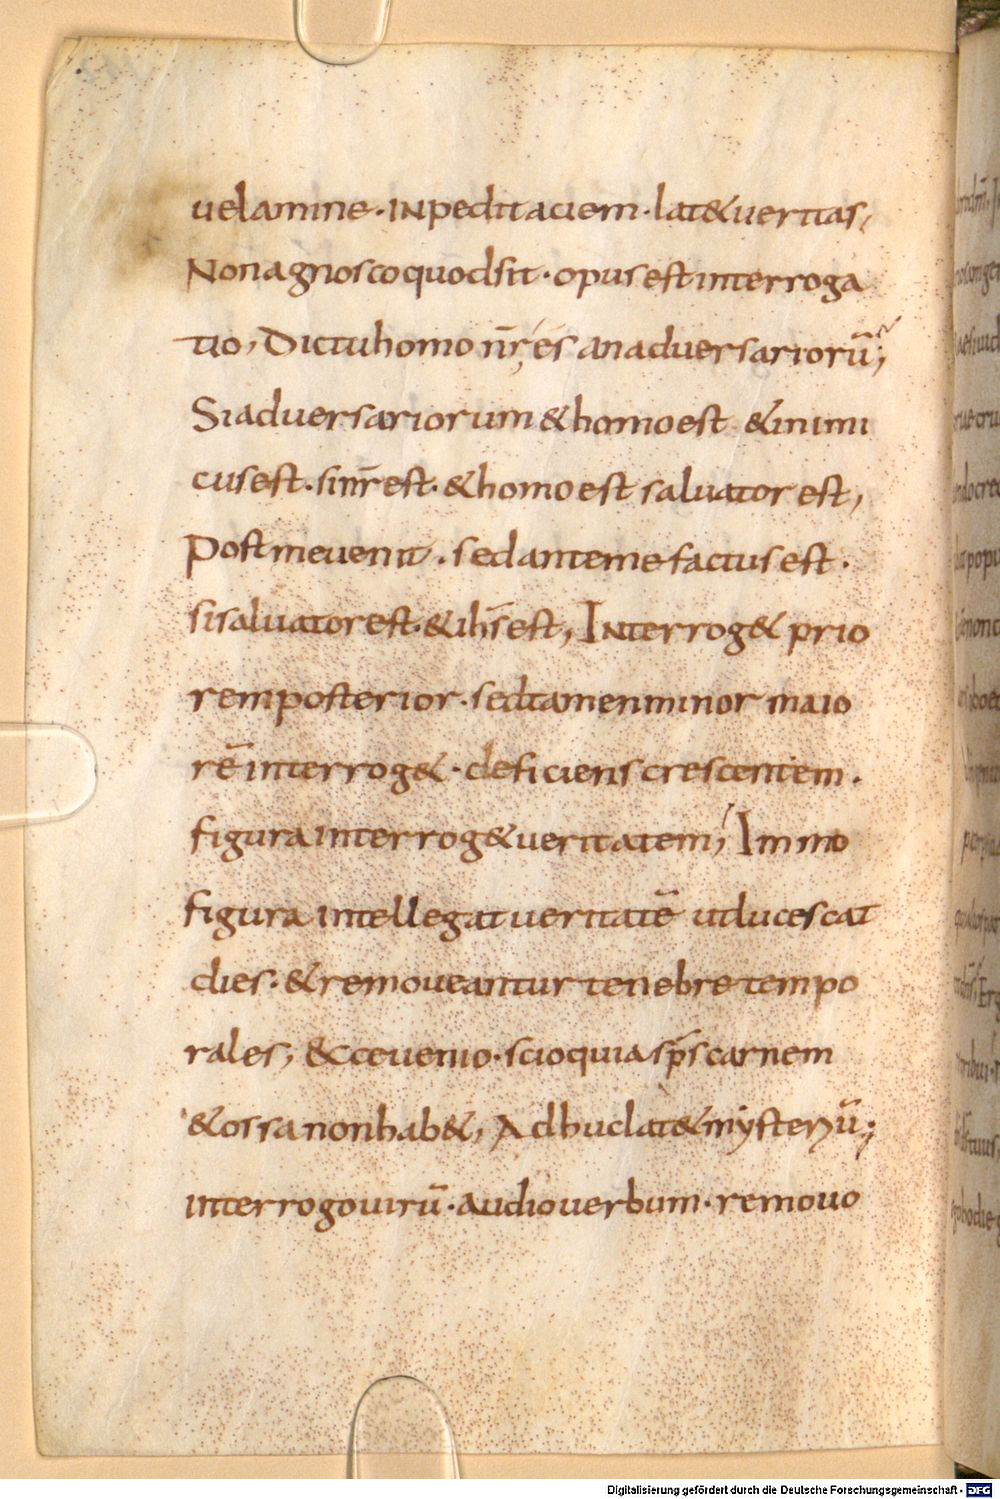 uelamine · INpedit aciem · lat& ueritas,
Non agnosco quod sit · opus est interroga
tio, Dic tu homo nr̄, és an aduersariorū;
Si aduersariorum & homo est & inimi
cus est · si nr̄ est · & homo est saluator est,
Post me uenit · sed ante me factus est ·
si saluator est · & ihs̄ est, INterrog& prio
rem posterior · sed tamen minor maio
rē interrog& · deficiens crescentem ·
figura interrog& ueritatem, Immo
figura intellegat ueritatē ut lucescat
dies · & remoueantur tenebre tempo
rales, &cce uenio · scio quia sp̄s carnem
& ossa non hab&, Adhuc lat& mẏsteriū;
interrogo uirū · Audio uerbum · remouo
Digitalisierung gefördert durch die Deutsche Forschungsgemeinschaft - DFG